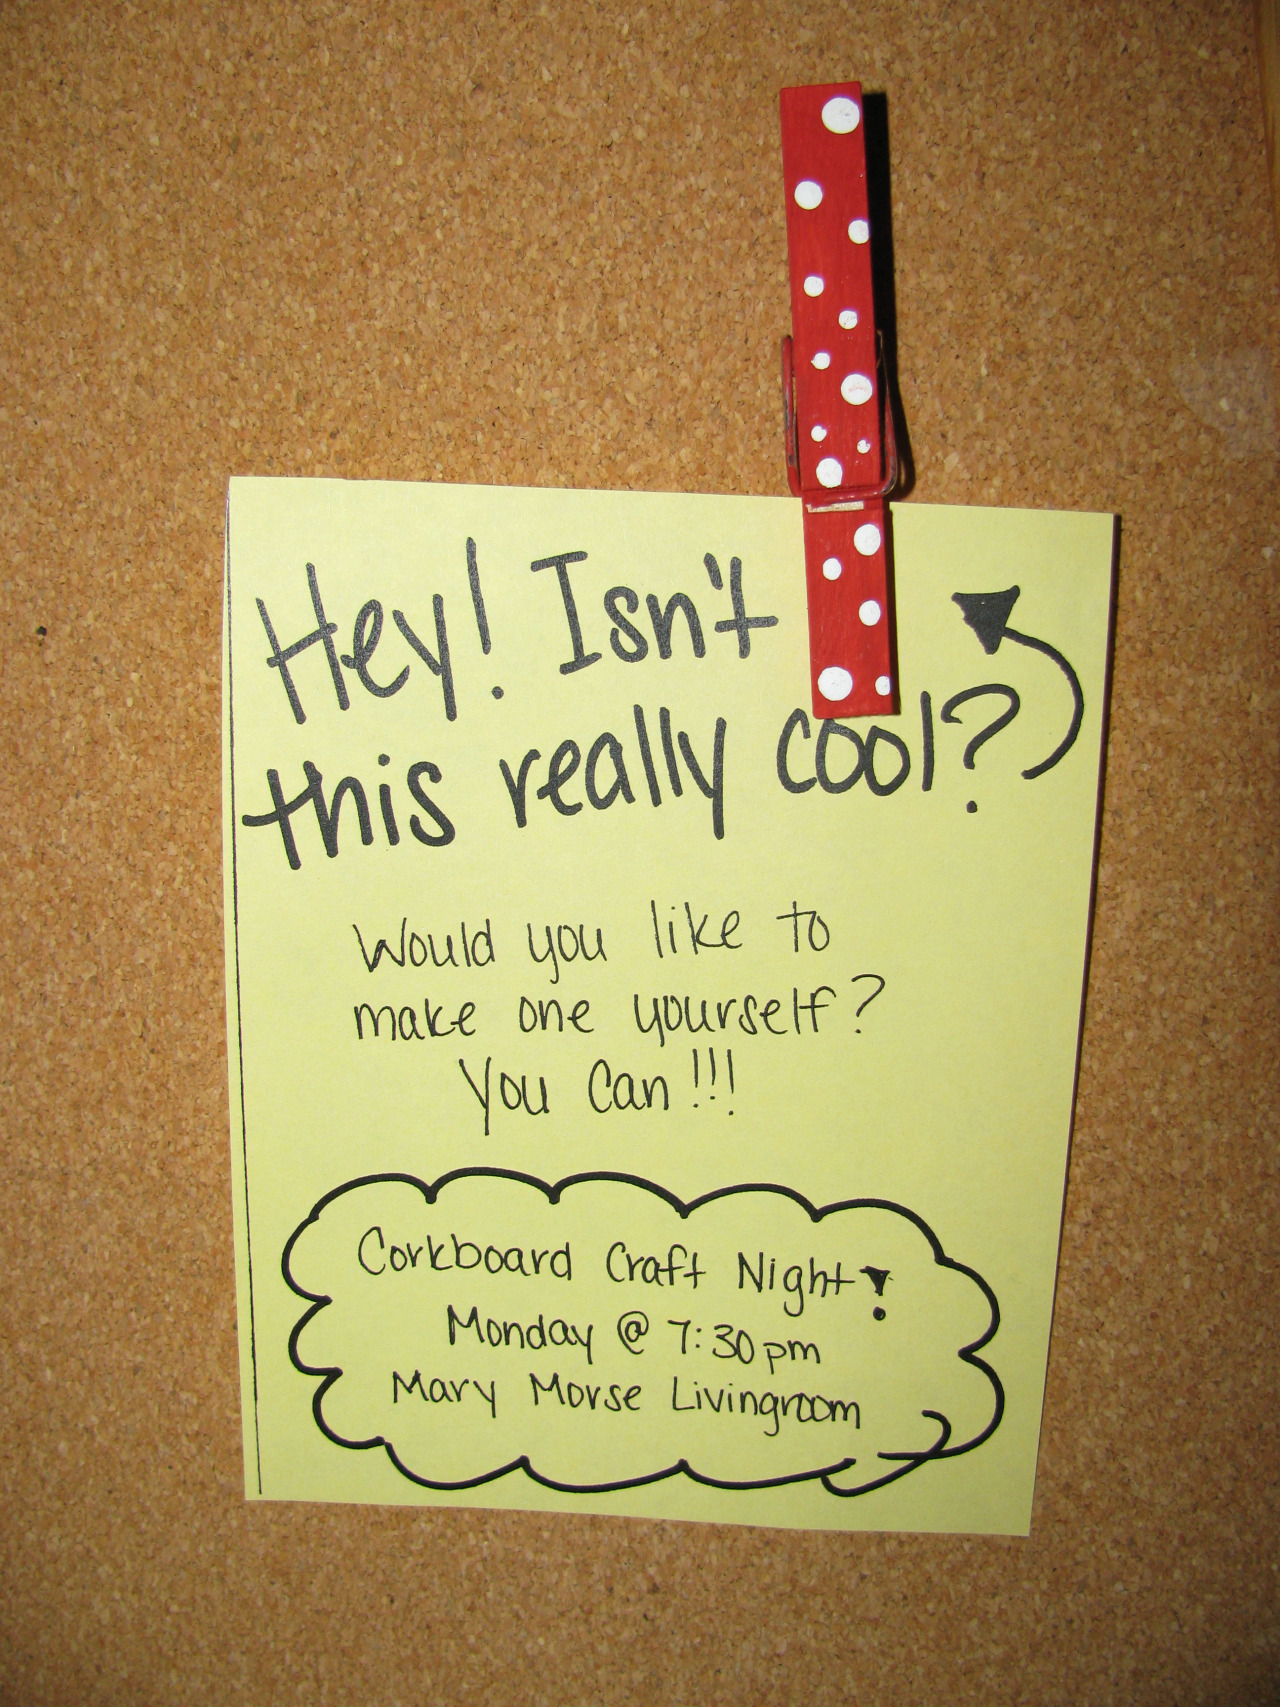 Hey! Isn't
this really cool?
Would you like to
make one yourself?
You Can!!!
Corkboard Craft Night!
Monday @ 7:30pm
Mary Morse Livingroom